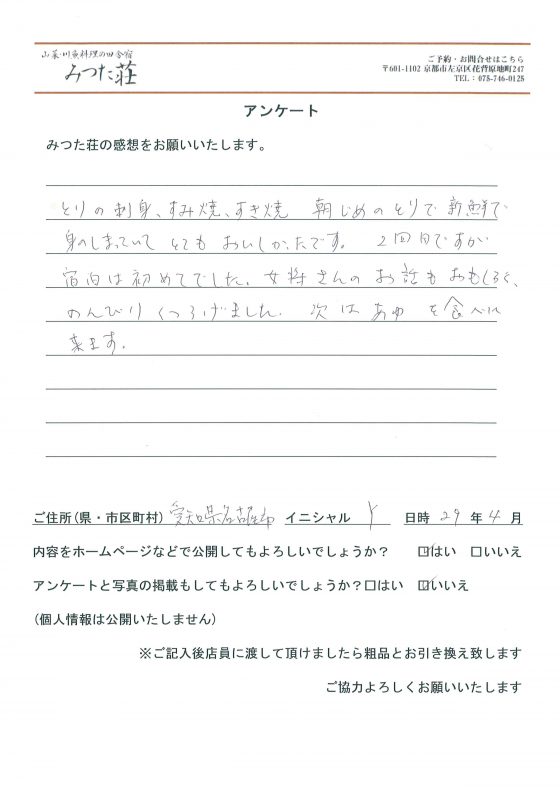 山菜・川魚料理の田舎宿
みつた荘
ご予約・お問合せはこちら
〒601-1102 京都市左京区花脊原地町247
TEL：075-746-0125
アンケート
みつた荘の感想をお願いいたします。
とりの刺身、すみ焼、すき焼 朝じめのとりで新鮮で
身のしまっていて とても おいしかったです。 2回目ですが
宿泊は初めてでした。女将さんのお話もおもしろく、
のんびりくつろげました。次は あゆ を食べに
来ます。
ご住所(県・市区町村) 愛知県名古屋市 イニシャル Y 日時 29 年 4 月
内容をホームページなどで公開してもよろしいでしょうか？ ☑はい □いいえ
アンケートと写真の掲載もしてもよろしいでしょうか？□はい ☑いいえ
(個人情報は公開いたしません)
※ご記入後店員に渡して頂けましたら粗品とお引き換え致します
ご協力よろしくお願いいたします